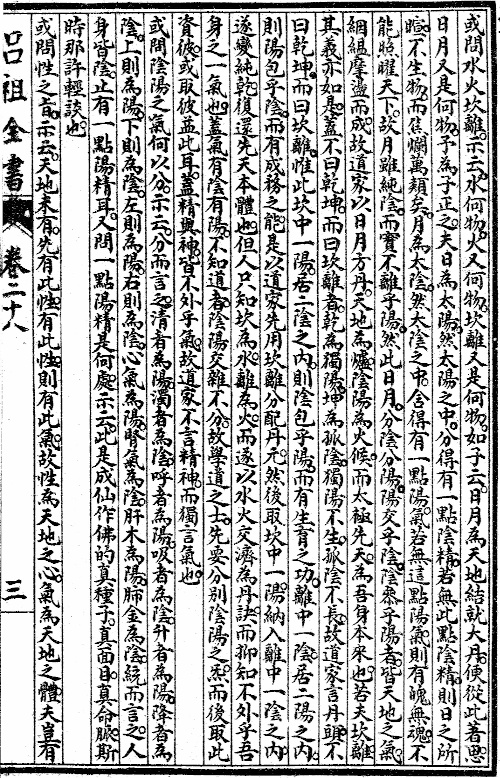 或問水火坎離示云水何物火又何物坎離又是何物如子云日月為天地結就大丹便從此著思
日月又是何物予為子正之夫日為太陽然太陽之中分得有一點陰精若無此點陰精則日之所
暄不生物而焦爛萬類矣月為太陰然太陰之中含得有一點陽氣若無這點陽氣則有魄無魂不
能照曜天下故月雖純陰而實不離乎陽然此日月分陰分陽陽交乎陰陰叅乎陽者皆天地之氣
絪縕摩盪而成故道家以日月方丹天地為爐陰陽為火候而太極先天為吾身本來也若夫坎離
其義亦如是蓋不曰乾坤而曰坎離者乾為獨陽坤為孤陰獨陽不生孤陰不長故道家言丹頭不
曰乾坤而曰坎離惟此坎中一陽居二陰之內則陰包乎陽而有生育之功離中一陰居二陽之內
則陽包乎陰而有成務之能是以道家先用坎離分配丹元然後取坎中一陽納入離中一陰之內
遂變純乾復還先天本體也但人只知坎為水離為火而遂以水火交濟為丹訣而抑知不外乎吾
身之一氣也蓋氣有陰有陽不知道者陰陽交離不分故學道之士先要分別陰陽之炁而後取此
資彼或取彼益此耳蓋精與神皆不外乎氣故道家不言精神而獨言氣也
或問陰陽之氣何以分示云分而言之清者為陽濁者為陰呼者為陽吸者為陰升者為陽降者為
陰上則為陽下則為陰左則為陽右則為陰心氣為陽腎氣為陰肝木為陽肺金為陰綂而言之人
身皆陰止有一點陽精耳又問一點陽精是何處示云此是成仙作佛的真種子真面目真命脈斯
時那許輕談也
或問性之旨示云天地未有先有此性有此性則有此氣故性為天地之心氣為天地之體夫豈有
呂祖全書 卷二十八 三